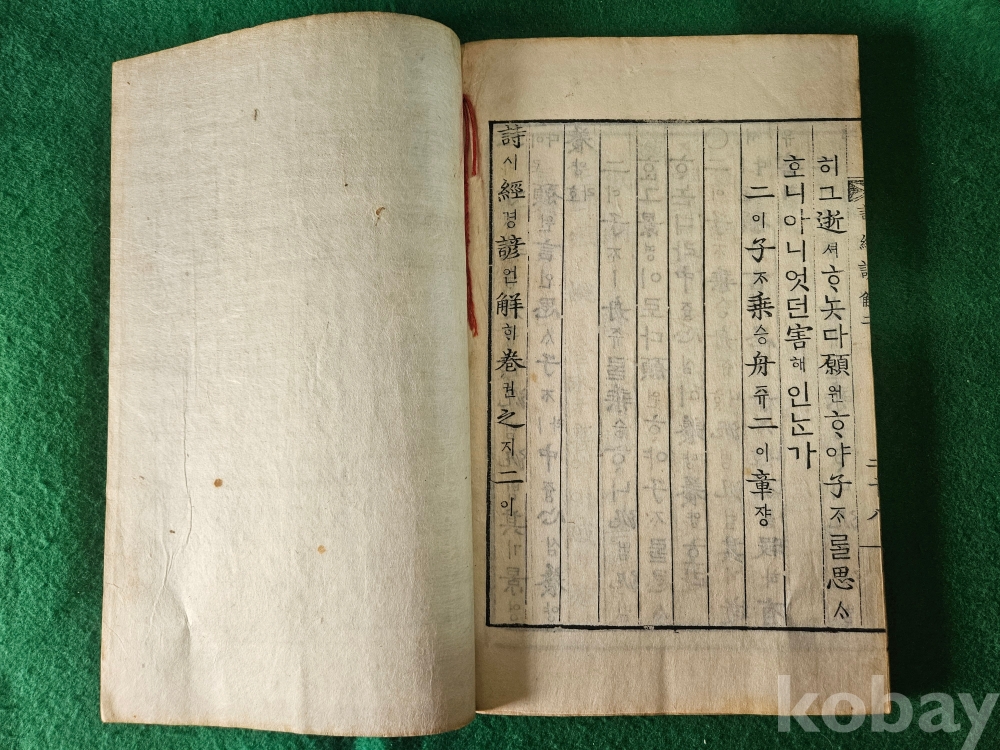 詩經諺解二
二十八
히그逝셔ᄒᆞ놋다願원ᄒᆞ야子ᄌᆞᄅᆞᆯ思ᄉᆞ
호니아니엇던害해인ᄂᆞᆫ가
二이子ᄌᆞ乘승舟쥬二이章쟝
詩시經경諺언解ᄒᆡ卷권之지二이
kobay